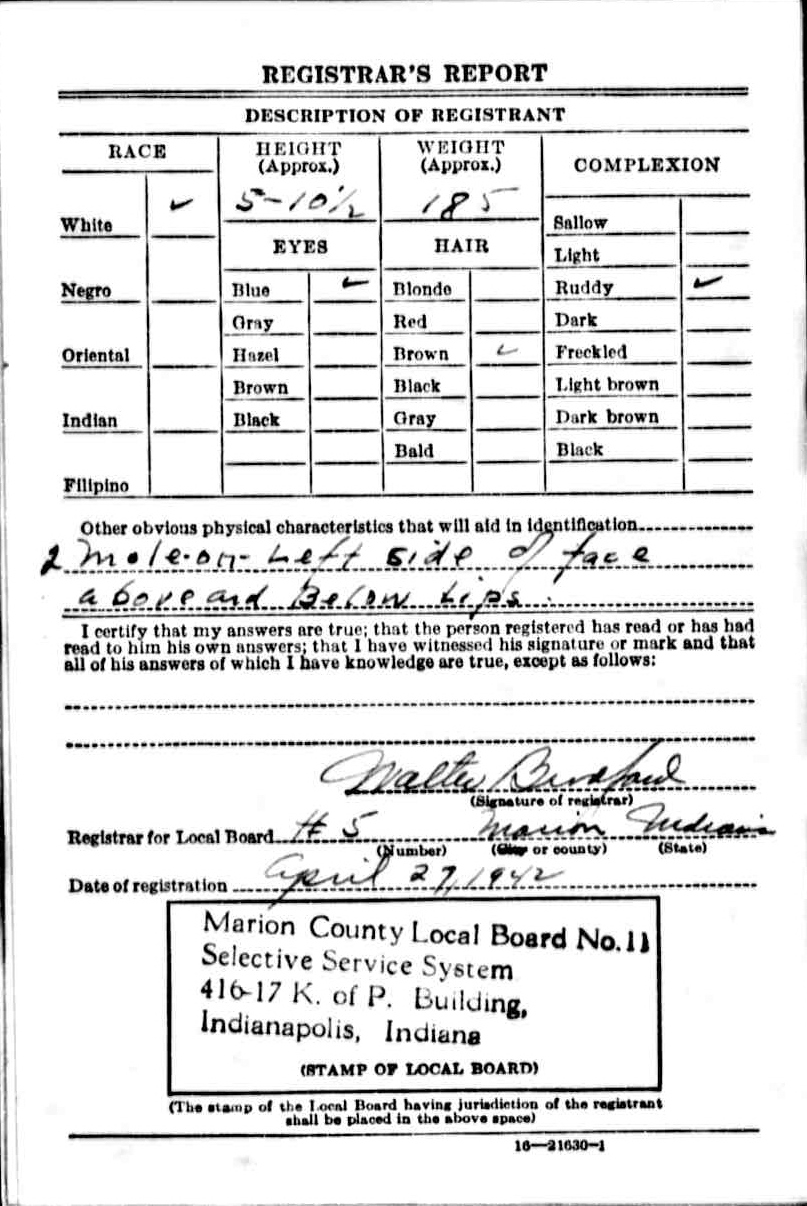 REGISTRAR'S REPORT
DESCRIPTION OF REGISTRANT
RACE
HEIGHT (Approx.)
WEIGHT (Approx.)
COMPLEXION
White ✓
5-10½
185
Sallow
EYES
HAIR
Light
Negro
Blue ✓
Blonde
Ruddy ✓
Gray
Red
Dark
Oriental
Hazel
Brown ✓
Freckled
Brown
Black
Light brown
Indian
Black
Gray
Dark brown
Bald
Black
Filipino
Other obvious physical characteristics that will aid in identification
2 Mole-on-Left side of face
above and Below Lips.
I certify that my answers are true; that the person registered has read or has had
read to him his own answers; that I have witnessed his signature or mark and that
all of his answers of which I have knowledge are true, except as follows:
Walter Bradford
(Signature of registrar)
Registrar for Local Board # 5 Marion Indiana
(Number) (City or county) (State)
Date of registration April 27, 1942
Marion County Local Board No. 11
Selective Service System
416-17 K. of P. Building,
Indianapolis, Indiana
(STAMP OF LOCAL BOARD)
(The stamp of the Local Board having jurisdiction of the registrant
shall be placed in the above space)
16—21630-1